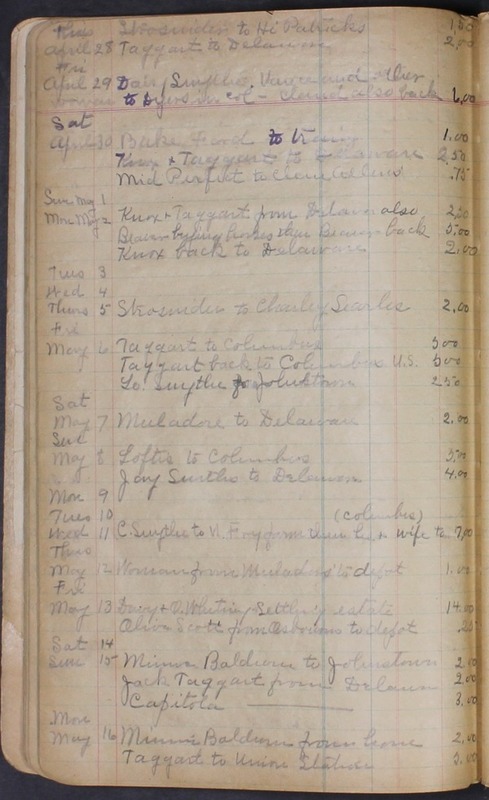 Thurs Strosnider to Hi Patricks 1.50
April 28 Taggart to Delaware 2.00
Fri
April 29 Davy Smythe, Vance and other
to Dyers in col - Cloud also back 6.00
Sat
April 30 Bake Food to 1.00
Knox + Taggart to Delaware 2.50
Mid Perfect to .75
Sun May 1
Mon May 2 Knox + Taggart from Delaware also 2.50
Beaver buying horses then Beaver back 5.00
Knox back to Delaware 2.00
Tues 3
Wed 4
Thurs 5 Strosnider to Charley Searles 2.00
Fri
May 6 Taggart to Columbus 5 00
Taggart back to Columbus U.S. 5 00
Lo. Smythe to Johnstown 2 50
Sat
May 7 Muladore to Delaware 2.00
Sun
May 8 Loftis to Columbus 5.00
Jay Smythe to Delaware 4.00
Mon 9
Tues 10 (Columbus)
Wed 11 C. Smythe to V. Fry from there he + wife to 7.00
Thurs
May 12 Woman from Muladore to depot 1.00
Fri
May 13 Davy + V. Whiting Settling estate 14.00
Oliver Scott from Osbourns to depot .25
Sat 14
Sun 15 Minnie Baldwin to Johnstown 2.00
Jack Taggart from Delaware 2.00
Capitola 3.00
Mon
May 16 Minnie Baldwin from home 2.00
Taggart to Union Station